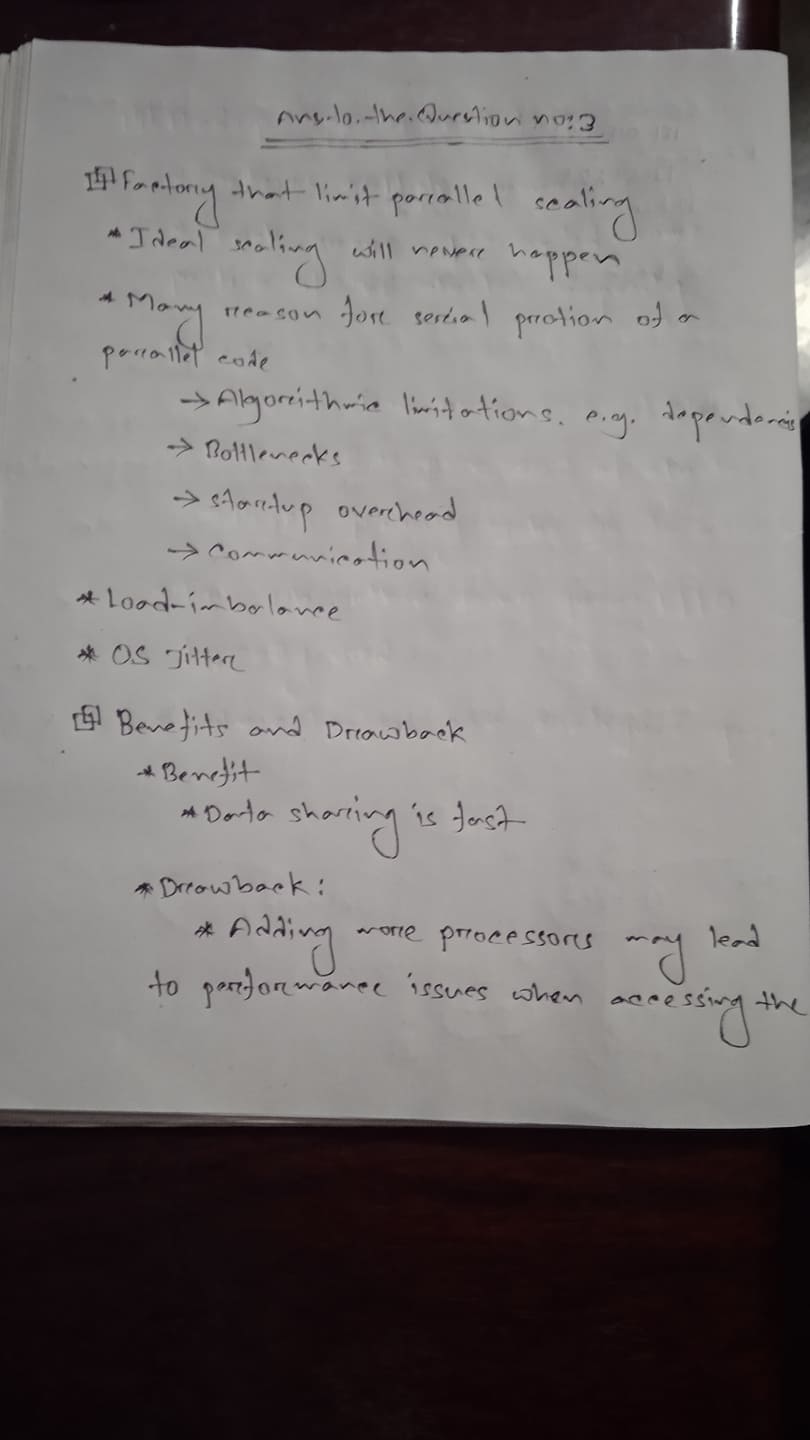 Ans.to.the.Question no:3
Factory that limit parallel scaling
* Ideal scaling will never happen
* Many reason for serial protion of a
parallel code
→ Algorithmic limitations. e.g. dependencis
→ Bottlenecks
→ startup overhead
→ Communication
* Load-imbalance
* OS Jitter
Benefits and Drawback
* Benefit
* Data sharing is fast
* Drawback:
* Adding more processors may lead
to performance issues when accessing the